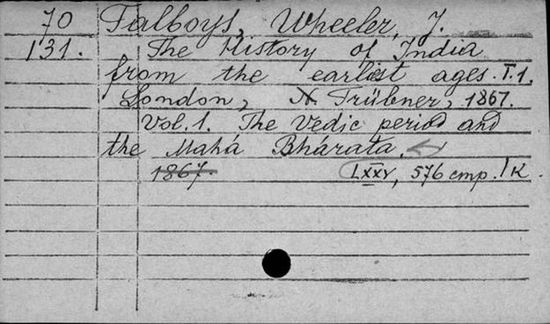 70 Talboys, Wheeler, J.
131. The History of India
from the earliest ages. T.1.
London, N. Trübner, 1867.
Vol. 1. The Vedic period and
the Mahá Bhárata.
1867. LXXV, 576 стр. 1 к.